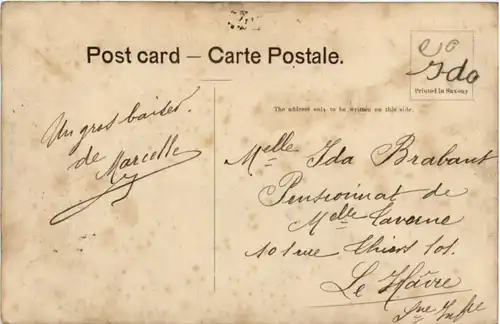 Post card – Carte Postale.
Ida
Printed in Saxony
The address only to be written on this side.
Un gros baiser
de Marcelle
Melle Ida Brabant
Pensionnat de
Melle Caverne
101 rue 101.
Le Hâvre
Sne Infre